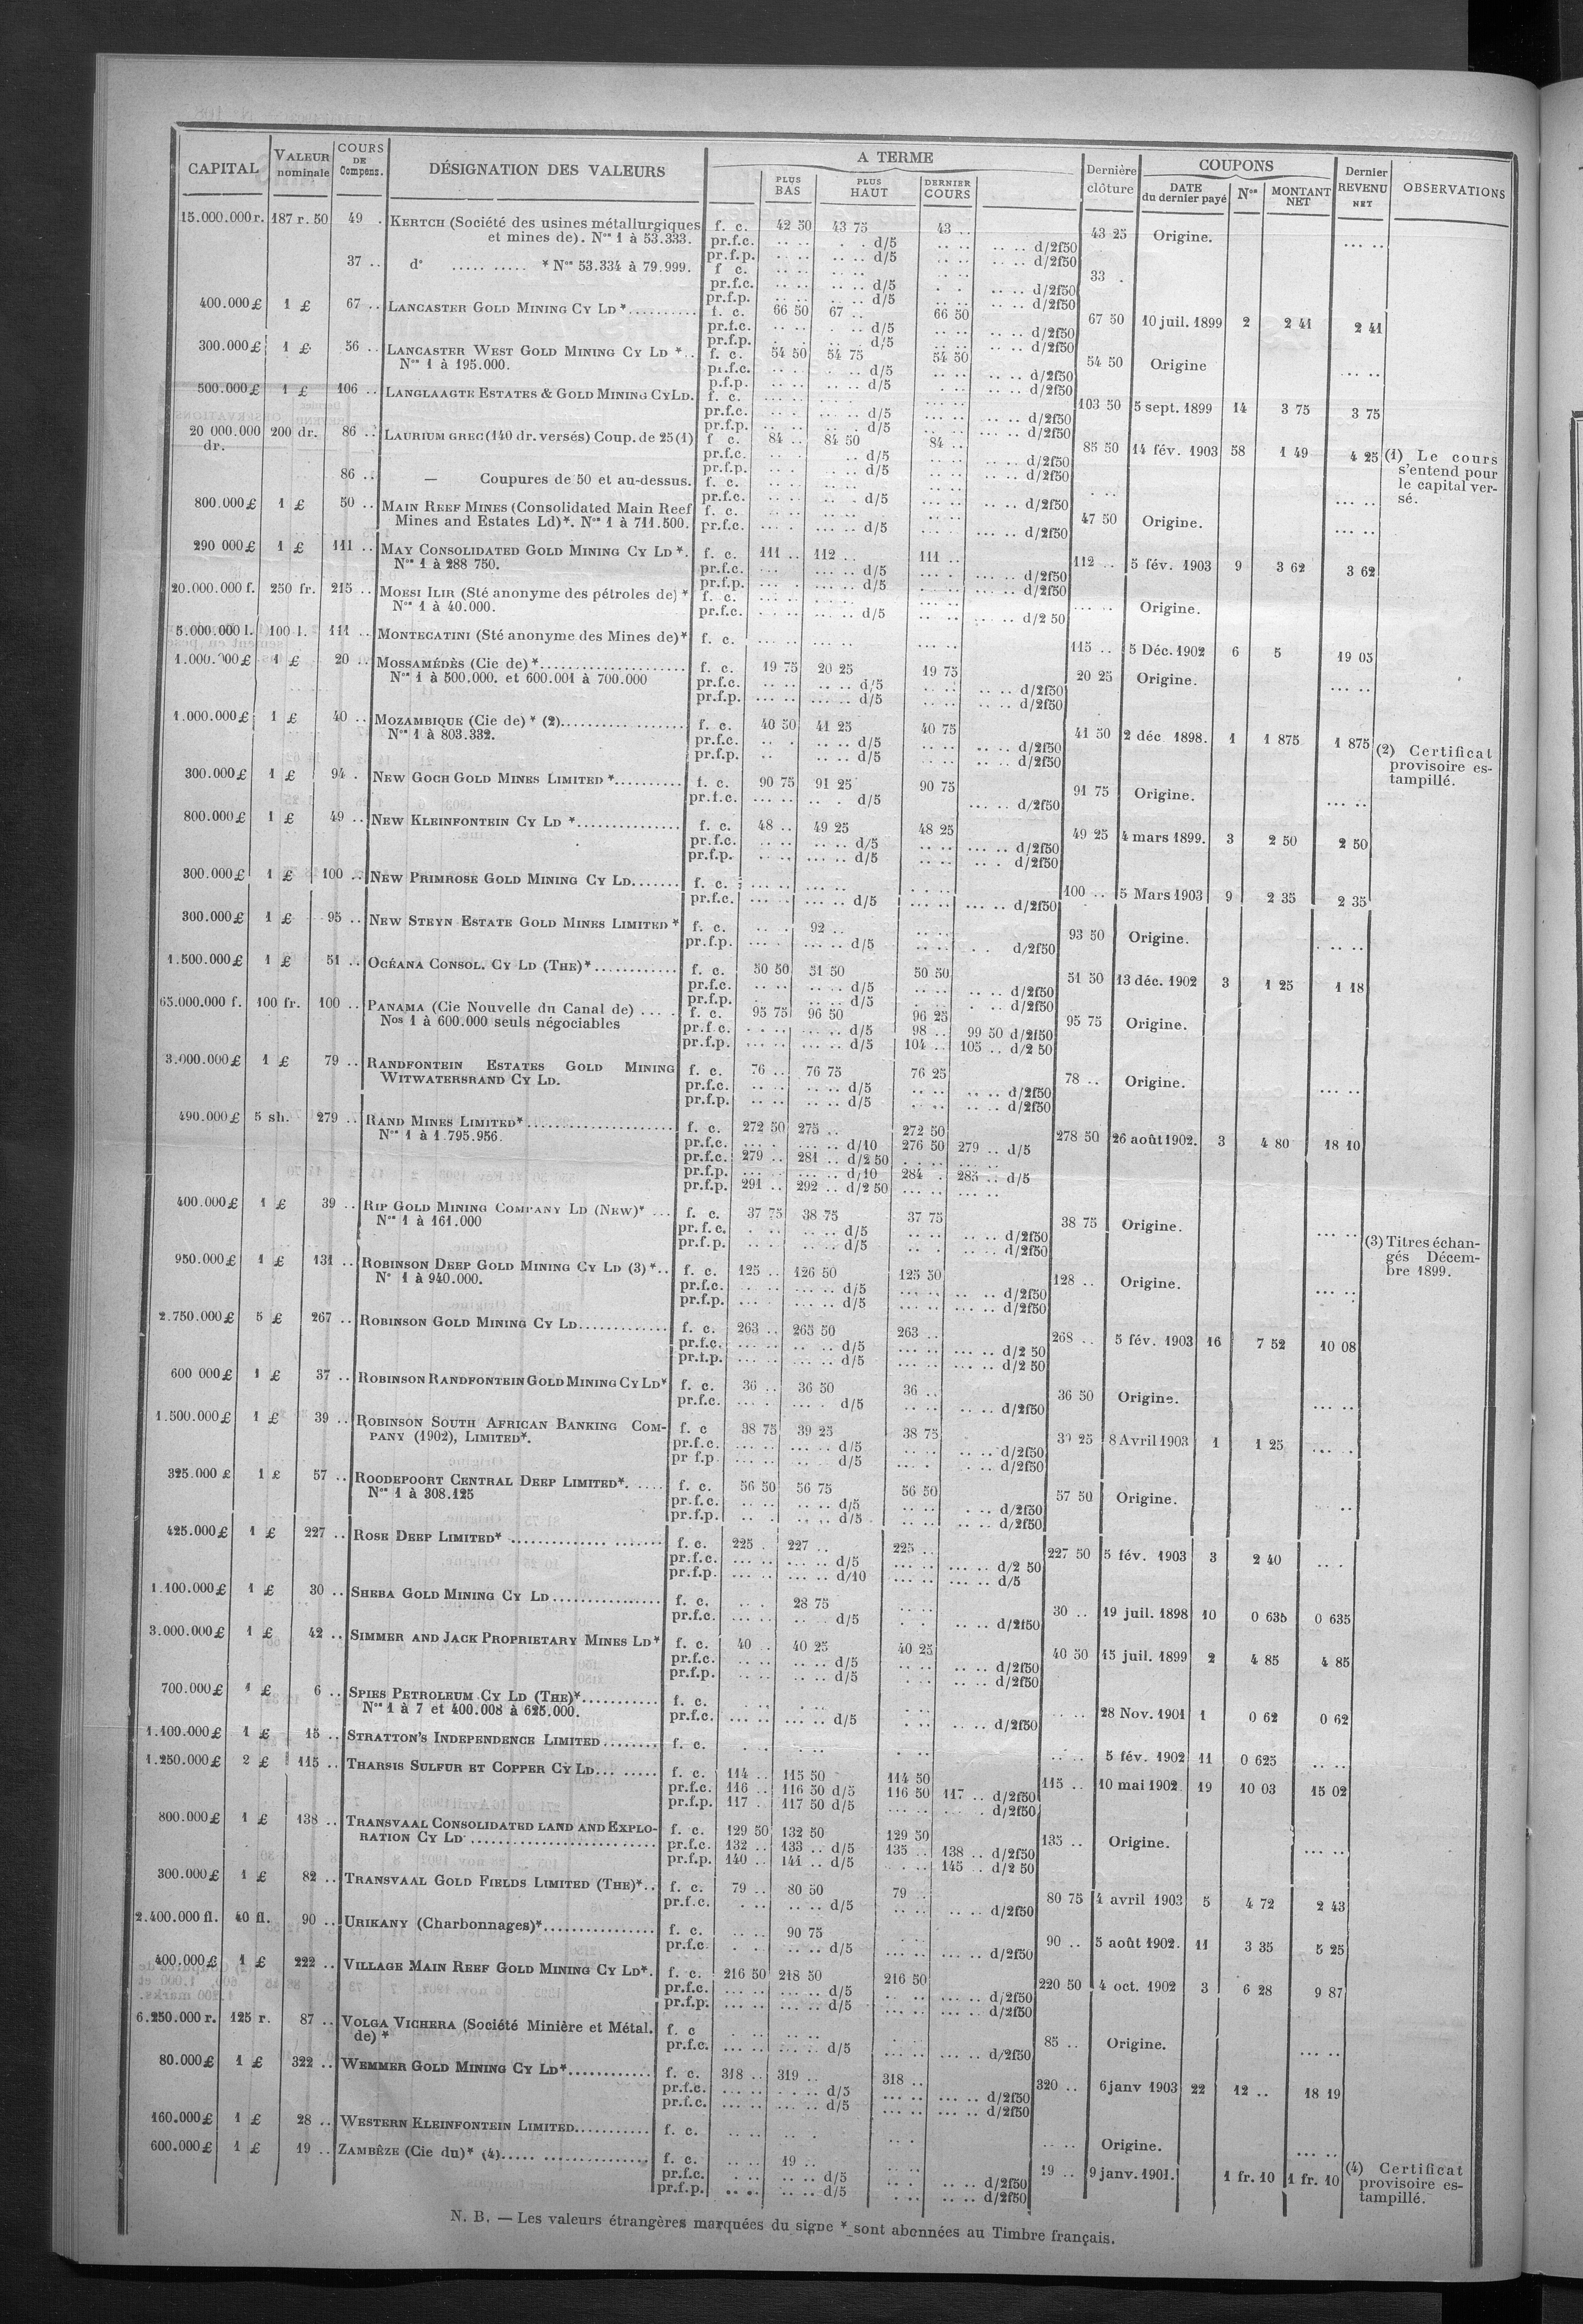 CAPITAL | VALEUR nominale | COURS DE Compens. | DÉSIGNATION DES VALEURS | A TERME | PLUS BAS | PLUS HAUT | DERNIER COURS | Dernière clôture | COUPONS | DATE du dernier payé | Nos | MONTANT NET | Dernier REVENU NET | OBSERVATIONS
15.000.000 r. 187 r. 50 49 . KERTCH (Société des usines métallurgiques f. c. 42 50 43 75 43 .. 43 25 Origine. ... ..
et mines de). Nos 1 à 53.333. pr.f.c. .. .. . . d/5 .. .. .. .. d/2f50
pr.f.p. .. .. .. .. d/5 .. .. .. .. d/2f50
37 .. do ..... ..... * Nos 53.334 à 79.999. f c. .. .. .. .. .. .. 33 .
pr.f.c. .. .. .. .. d/5 . . .. .. d/2f50
pr.f.p. .. .. .. .. d/5 .. .. .. .. d/2f50
400.000 £ 1 £ 67 .. LANCASTER GOLD MINING CY LD *.......... f. c. 66 50 67 .. 66 50 67 50 10 juil. 1899 2 2 41 2 41
pr.f.c. .. .. . .. d/5 .. .. .. .. d/2f50
pr.f.p. . . .. . d/5 .. .. .. .. d/2f50
300.000 £ 1 £ 56 .. LANCASTER WEST GOLD MINING CY LD *.. f. c. 54 50 54 75 54 50 54 50 Origine ... ..
Nos 1 à 195.000. pr.f.c. .. . . .. d/5 .. .. .. .. d/2f50
p.f.p. .. .. .. .. d/5 . .. .. .. d/2f50
500.000 £ 1 £ 106 .. LANGLAAGTE ESTATES & GOLD MINING CYLD. f. c. ... .. ... .. ... .. 103 50 5 sept. 1899 14 3 75 3 75
pr.f.c. ... . ... .. d/5 ... .. ... .. d/2f50
pr.f.p. ... .. ... .. d/5 ... .. ... .. d/2f50
20 000.000 dr. 200 dr. 86 .. LAURIUM GREC (140 dr. versés) Coup. de 25 (1) f c. 84 .. 84 50 84 .. 85 50 14 fév. 1903 58 1 49 4 25 (1) Le cours
pr.f.c. .. . .. d/5 .. .. .. .. d/2f50 s'entend pour
pr.f.p. .. .. .. .. d/5 .. .. .. .. d/2f50 le capital ver-
86 .. — Coupures de 50 et au-dessus. f. c. .. .. .. .. .. .. . .. ... .. sé.
pr.f.c. .. .. .. . d/5 ... .. .. .. d/2f50
800.000 £ 1 £ 50 .. MAIN REEF MINES (Consolidated Main Reef f. c. .. .. .. .. .. .. 47 50 Origine. ... ..
Mines and Estates Ld)*. Nos 1 à 711.500. pr.f.c. ... . ... .. d/5 ... .. ... .. d/2f50
290 000 £ 1 £ 111 .. MAY CONSOLIDATED GOLD MINING CY LD *. f. c. 111 .. 112 .. 111 .. 112 .. 5 fév. 1903 9 3 62 3 62
Nos 1 à 288 750. pr.f.c. ... ... .. d/5 ... . ... .. d/2f50
pr.f.p. ... . ... .. d/5 . .. ... .. d/2f50
20.000.000 f. 250 fr. 215 .. MOESI ILIR (Sté anonyme des pétroles de) * f. c. ... .. ... .. ... .. ... .. Origine.
Nos 1 à 40.000. pr.f.c. ... .. ... .. d/5 ... .. ... .. d/2 50
5.000.000 l. 100 l. 111 .. MONTECATINI (Sté anonyme des Mines de)* f. c. ... .. ... .. ... .. 115 .. 5 Déc. 1902 6 5 19 05
1.000.000 £ 1 £ 20 .. MOSSAMÉDÈS (Cie de) *.................... f. c. 19 75 20 25 19 75 20 25 Origine. ... ..
Nos 1 à 500.000. et 600.001 à 700.000 pr.f.c. .. .. .. .. d/5 .. .. .. .. d/2f50
pr.f.p. ... .. ... .. d/5 .. .. .. .. d/2f50
1.000.000 £ 1 £ 40 .. MOZAMBIQUE (Cie de) * (2)................. f. c. 40 50 41 25 40 75 41 50 2 déc. 1898. 1 1 875 1 875 (2) Certificat
Nos 1 à 803.332. pr.f.c. .. . .. .. d/5 .. .. .. .. d/2f50 provisoire es-
pr.f.p. .. . .. .. d/5 .. .. .. .. d/2f50 tampillé.
300.000 £ 1 £ 94 . NEW GOCH GOLD MINES LIMITED *.......... f. c. 90 75 91 25 90 75 91 75 Origine. ... ..
pr.f.c. ... .. .. . d/5 ... .. d/2f50
800.000 £ 1 £ 49 .. NEW KLEINFONTEIN CY LD *............... f. c. 48 .. 49 25 48 25 49 25 4 mars 1899. 3 2 50 2 50
pr.f.c. .. .. .. .. d/5 .. .. ... .. d/2f50
pr.f.p. .. .. ... .. d/5 .. .. .. . d/2f50
300.000 £ 1 £ 100 .. NEW PRIMROSE GOLD MINING CY LD....... f. c. ... .. ... .. . .. 100 .. 5 Mars 1903 9 2 35 2 35
pr.f.c. ... . ... .. d/5 ... .. ... .. d/2f50
300.000 £ 1 £ 95 .. NEW STEYN ESTATE GOLD MINES LIMITED * f. c. .. . 92 .. .. .. 93 50 Origine. . .. ..
pr.f.p. ... . ... .. d/5 .. .. . . d/2f50
1.500.000 £ 1 £ 51 .. OCÉANA CONSOL. CY LD (THE)*............ f. c. 50 50 51 50 50 50 51 50 13 déc. 1902 3 1 25 1 18
pr.f.c. .. .. .. .. d/5 .. .. .. .. d/2f50
pr.f.p. . .. .. d/5 . .. . .. d/2f50
65.000.000 f. 100 fr. 100 .. PANAMA (Cie Nouvelle du Canal de) ... . f. c. 95 75 96 50 96 25 95 75 Origine.
Nos 1 à 600.000 seuls négociables pr.f c. .. .. .. .. d/5 98 .. 99 50 d/2f50
pr.f.p. ... .. ... .. d/5 104 .. 105 .. d/2 50
3.000.000 £ 1 £ 79 .. RANDFONTEIN ESTATES GOLD MINING f. c. 76 .. 76 75 76 25 78 .. Origine. ... ..
WITWATERSRAND CY LD. pr.f.c. .. .. .. .. d/5 .. .. .. .. d/2f50
pr.f.p. .. .. .. .. d/5 . .. .. .. d/2f50
490.000 £ 5 sh. 279 .. RAND MINES LIMITED*..................... f. c. 272 50 275 .. 272 50 278 50 26 août 1902. 3 4 80 18 10
Nos 1 à 1.795.956. pr.f.c. ... . ... .. d/10 276 50 279 .. d/5
pr.f.c. 279 .. 281 .. d/2 50 . .. ... ..
pr.f.p. ... . ... .. d/10 284 . 285 .. d/5
pr.f.p. 291 .. 292 .. d/2 50 ... .. ... ..
400.000 £ 1 £ 39 .. RIP GOLD MINING COMPANY LD (NEW)* ... f. c. 37 75 38 75 37 75 38 75 Origine. ... ..
Nos 1 à 161.000 pr. f. c. . .. .. .. d/5 .. .. .. .. d/2f50
pr.f.p. .. . .. .. d/5 .. . .. .. d/2f50 (3) Titres échan-
950.000 £ 1 £ 131 .. ROBINSON DEEP GOLD MINING CY LD (3)*.. f. c. 125 .. 126 50 125 50 128 .. Origine. ... .. gés Décem-
No 1 à 940.000. pr.f.c. . .. ... .. d/5 ... .. .. .. d/2f50 bre 1899.
pr.f.p. ... . ... .. d/5 ... .. ... .. d/2f50
2.750.000 £ 5 £ 267 .. ROBINSON GOLD MINING CY LD............ f. c. 263 .. 265 50 263 .. 268 .. 5 fév. 1903 16 7 52 10 08
pr.f.c. ... .. .. .. d/5 ... .. ... .. d/2 50
pr.f.p. ... .. ... .. d/5 ... .. ... .. d/2 50
600 000 £ 1 £ 37 .. ROBINSON RANDFONTEIN GOLD MINING CY LD* f. c. 36 .. 36 50 36 .. 36 50 Origine. ... ..
pr.f.c. ... . ... . d/5 .. .. .. .. d/2f50
1.500.000 £ 1 £ 39 .. ROBINSON SOUTH AFRICAN BANKING COM- f. c 38 75 39 25 38 75 39 25 8 Avril 1903 1 1 25 ... ..
PANY (1902), LIMITED*. pr.f.c. ... .. ... .. d/5 .. . .. .. d/2f50
pr f.p. ... .. .. .. d/5 ... . . .. d/2f50
325.000 £ 1 £ 57 .. ROODEPOORT CENTRAL DEEP LIMITED*. .... f. c. 56 50 56 75 56 50 57 50 Origine. ..
Nos 1 à 308.125 pr.f.c. .. .. .. .. d/5 .. .. . .. d/2f50
pr.f.p. .. . .. .. d/5 .. .. .. .. d/2f50
425.000 £ 1 £ 227 .. ROSE DEEP LIMITED* .............. ....... f. c. 225 . 227 .. 225 .. 227 50 5 fév. 1903 3 2 40 .. .
pr.f.c. ... .. ... .. d/5 ... .. ... .. d/2 50
pr.f.p. ... .. ... .. d/10 ... .. ... .. d/5
1.100.000 £ 1 £ 30 .. SHEBA GOLD MINING CY LD................ f. c. .. . 28 75 .. .. 30 .. 19 juil. 1898 10 0 635 0 635
pr.f.c. ... .. .. . d/5 . . .. .. d/2f50
3.000.000 £ 1 £ 42 .. SIMMER AND JACK PROPRIETARY MINES LD* f. c. 40 .. 40 25 40 25 40 50 15 juil. 1899 2 4 85 4 85
pr.f.c. .. .. .. .. d/5 .. .. .. .. d/2f50
pr.f.p. .. .. .. .. d/5 . .. .. .. d/2f50
700.000 £ 1 £ 6 .. SPIES PETROLEUM CY LD (THE)*........... f. c. .. .. . .. . .. .. .. 28 Nov. 1901 1 0 62 0 62
Nos 1 à 7 et 400.008 à 625.000. pr.f.c. ... .. ... .. d/5 . .. .. .. d/2f50
1.100.000 £ 1 £ 15 .. STRATTON'S INDEPENDENCE LIMITED........ f. c. . . . .. . .. .. .. 5 fév. 1902 11 0 625 .. ..
1.250.000 £ 2 £ 115 .. THARSIS SULFUR ET COPPER CY LD... ..... f. c. 114 .. 115 50 114 50 115 .. 10 mai 1902. 19 10 03 15 02
pr.f.c. 116 .. 116 50 d/5 116 50 117 .. d/2f50
pr.f.p. 117 . 117 50 d/5 ... .. . . d/2f50
800.000 £ 1 £ 138 .. TRANSVAAL CONSOLIDATED LAND AND EXPLO- f. c. 129 50 132 50 129 50 135 .. Origine. ... ..
RATION CY LD.......................... pr.f.c. 132 .. 133 .. d/5 135 .. 138 .. d/2f50
pr.f.p. 140 .. 141 .. d/5 . .. 145 .. d/2 50
300.000 £ 1 £ 82 .. TRANSVAAL GOLD FIELDS LIMITED (THE)*.. f. c. 79 .. 80 50 79 .. 80 75 4 avril 1903 5 4 72 2 43
pr.f.c. . .. .. .. d/5 .. .. .. .. d/2f50
2.400.000 fl. 40 fl. 90 .. URIKANY (Charbonnages)*................ f. c. .. .. 90 75 90 .. 5 août 1902. 11 3 35 5 25
pr.f.c. . . .. .. d/5 ... .. ... .. d/2f50
400.000 £ 1 £ 222 .. VILLAGE MAIN REEF GOLD MINING CY LD*. f. c. 216 50 218 50 216 50 220 50 4 oct. 1902 3 6 28 9 87
pr.f.c. ... .. ... .. d/5 .. .. ... .. d/2f50
pr.f.p. ... .. ... .. d/5 ... .. ... .. d/2f50
6.250.000 r. 125 r. 87 .. VOLGA VICHERA (Société Minière et Métal. f. c . .. .. .. . .. 85 .. Origine. ... ..
de) * pr.f.c. ... .. ... .. d/5 ... .. ... .. d/2f50
80.000 £ 1 £ 322 .. WEMMER GOLD MINING CY LD*............ f. c. 318 .. 319 .. 318 .. 320 .. 6 janv 1903 22 12 .. 18 19
pr.f.c. ... .. . .. d/5 ... .. ... .. d/2f50
pr.f.c. ... .. ... .. d/5 ... .. ... .. d/2f50
160.000 £ 1 £ 28 .. WESTERN KLEINFONTEIN LIMITED........... f. c. .. .. .. . .. . .. .. Origine. ... ..
600.000 £ 1 £ 19 .. ZAMBÈZE (Cie du)* (4)..... ................ f. c. .. .. 19 .. .. .. 19 .. 9 janv. 1901. 1 fr. 10 1 fr. 10 (4) Certificat
pr.f.c. . .. .. .. d/5 . .. .. .. d/2f50 provisoire es-
pr.f.p. .. .. .. .. d/5 . .. .. .. d/2f50 tampillé.
N. B. — Les valeurs étrangères marquées du signe * sont abonnées au Timbre français.